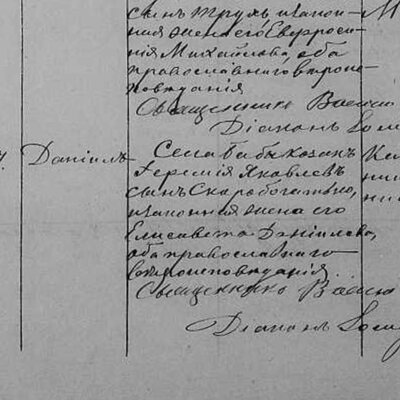 сынъ Трухъ и закон-
ная жена его Евфроси-
нія Михайлова, оба
православнаго вѣроис-
повѣданія
Священникъ Васил
Діаконъ
Даніилъ
Села Бабы козакъ
Іеремія Яковлевъ
сынъ Скаробогатько,
и законная жена его
Елисавета Даніилова,
оба православнаго
вѣроисповѣданія.
Священникъ Васил
Діаконъ